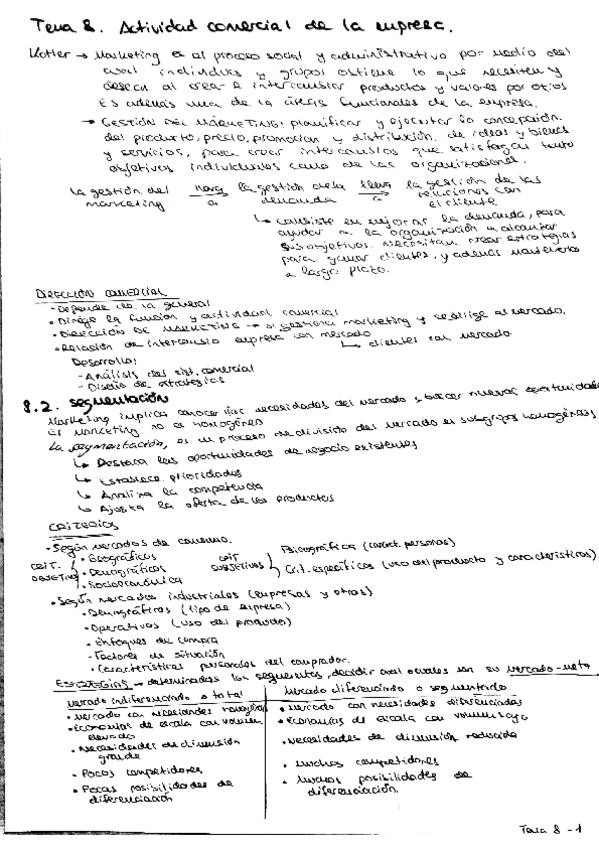 Tema 8. Actividad comercial de la empresa.
Kotler → Marketing es al proceso social y administrativo por medio del
cual individuos y grupos obtiene lo que necesiten y
desean al crear e intercambiar productos y valores por otros
Es además una de la áreas funcionales de la empresa.
→ GESTIÓN DEL MARKETING: planificar y ejecutar la concepción
del producto, precio, promoción y distribución de ideas y bienes
y servicios, para crear intercambios que satisfagan tanto
objetivos individuales como de las organizacional.
la gestión del marketing lleva a la gestión de la demanda lleva a la gestión de las relaciones con el cliente
↳ consiste en mejorar la demanda, para
ayudar a la organización a alcanzar
sus objetivos. Necesitan crear estrategias
para ganar clientes, y además mantenerlos
a largo plazo.
DIRECCIÓN COMERCIAL
- Depende de la general
• Dirige la función y actividad comercial
• DIRECCIÓN DE MARKETING → si gestiona marketing y se dirige al mercado.
• Relación de intercambio empresa con mercado
↳ clientes con mercado
Desarrolla:
- Análisis del sist. comercial
- Diseño de estrategias
8.2. Segmentación
Marketing implica conocer las necesidades del mercado y buscar nuevas oportunidades
El marketing no es homogéneo
La segmentación, es un proceso de división del mercado en subgrupos homogéneos
↳ Destaca las oportunidades de negocio existentes
↳ Establece prioridades
↳ Analiza la competencia
↳ Ajusta la oferta de los productos
CRITERIOS
- Según mercados de consumo.
CRIT. OBJETIVOS
• Geográficos
• Demográficos
• Socioeconómica
CRIT. SUBJETIVOS
Psicográfica (caract. personas)
Crit. específicos (uso del producto y características)
• Según mercados industriales (empresas y otros)
• Demográficas (tipo de empresa)
• Operativas (uso del producto)
• Enfoques de compra
- Factores de situación
• Características personales del comprador.
ESTRATEGIAS → determinados los segmentos, decidir cual o cuales son su mercado-meta
Mercado indiferenciado o total
• Mercado con necesidades homogéneas
• Economías de escala con volumen elevado
• Necesidades de dimensión grande
• Pocos competidores
• Pocas posibilidades de diferenciación
Mercado diferenciado o segmentado
• Mercado con necesidades diferenciadas
• Economías de escala con volumen bajo
• Necesidades de dimensión reducida
• Muchos competidores
• Muchas posibilidades de diferenciación.
Tema 8 - 1